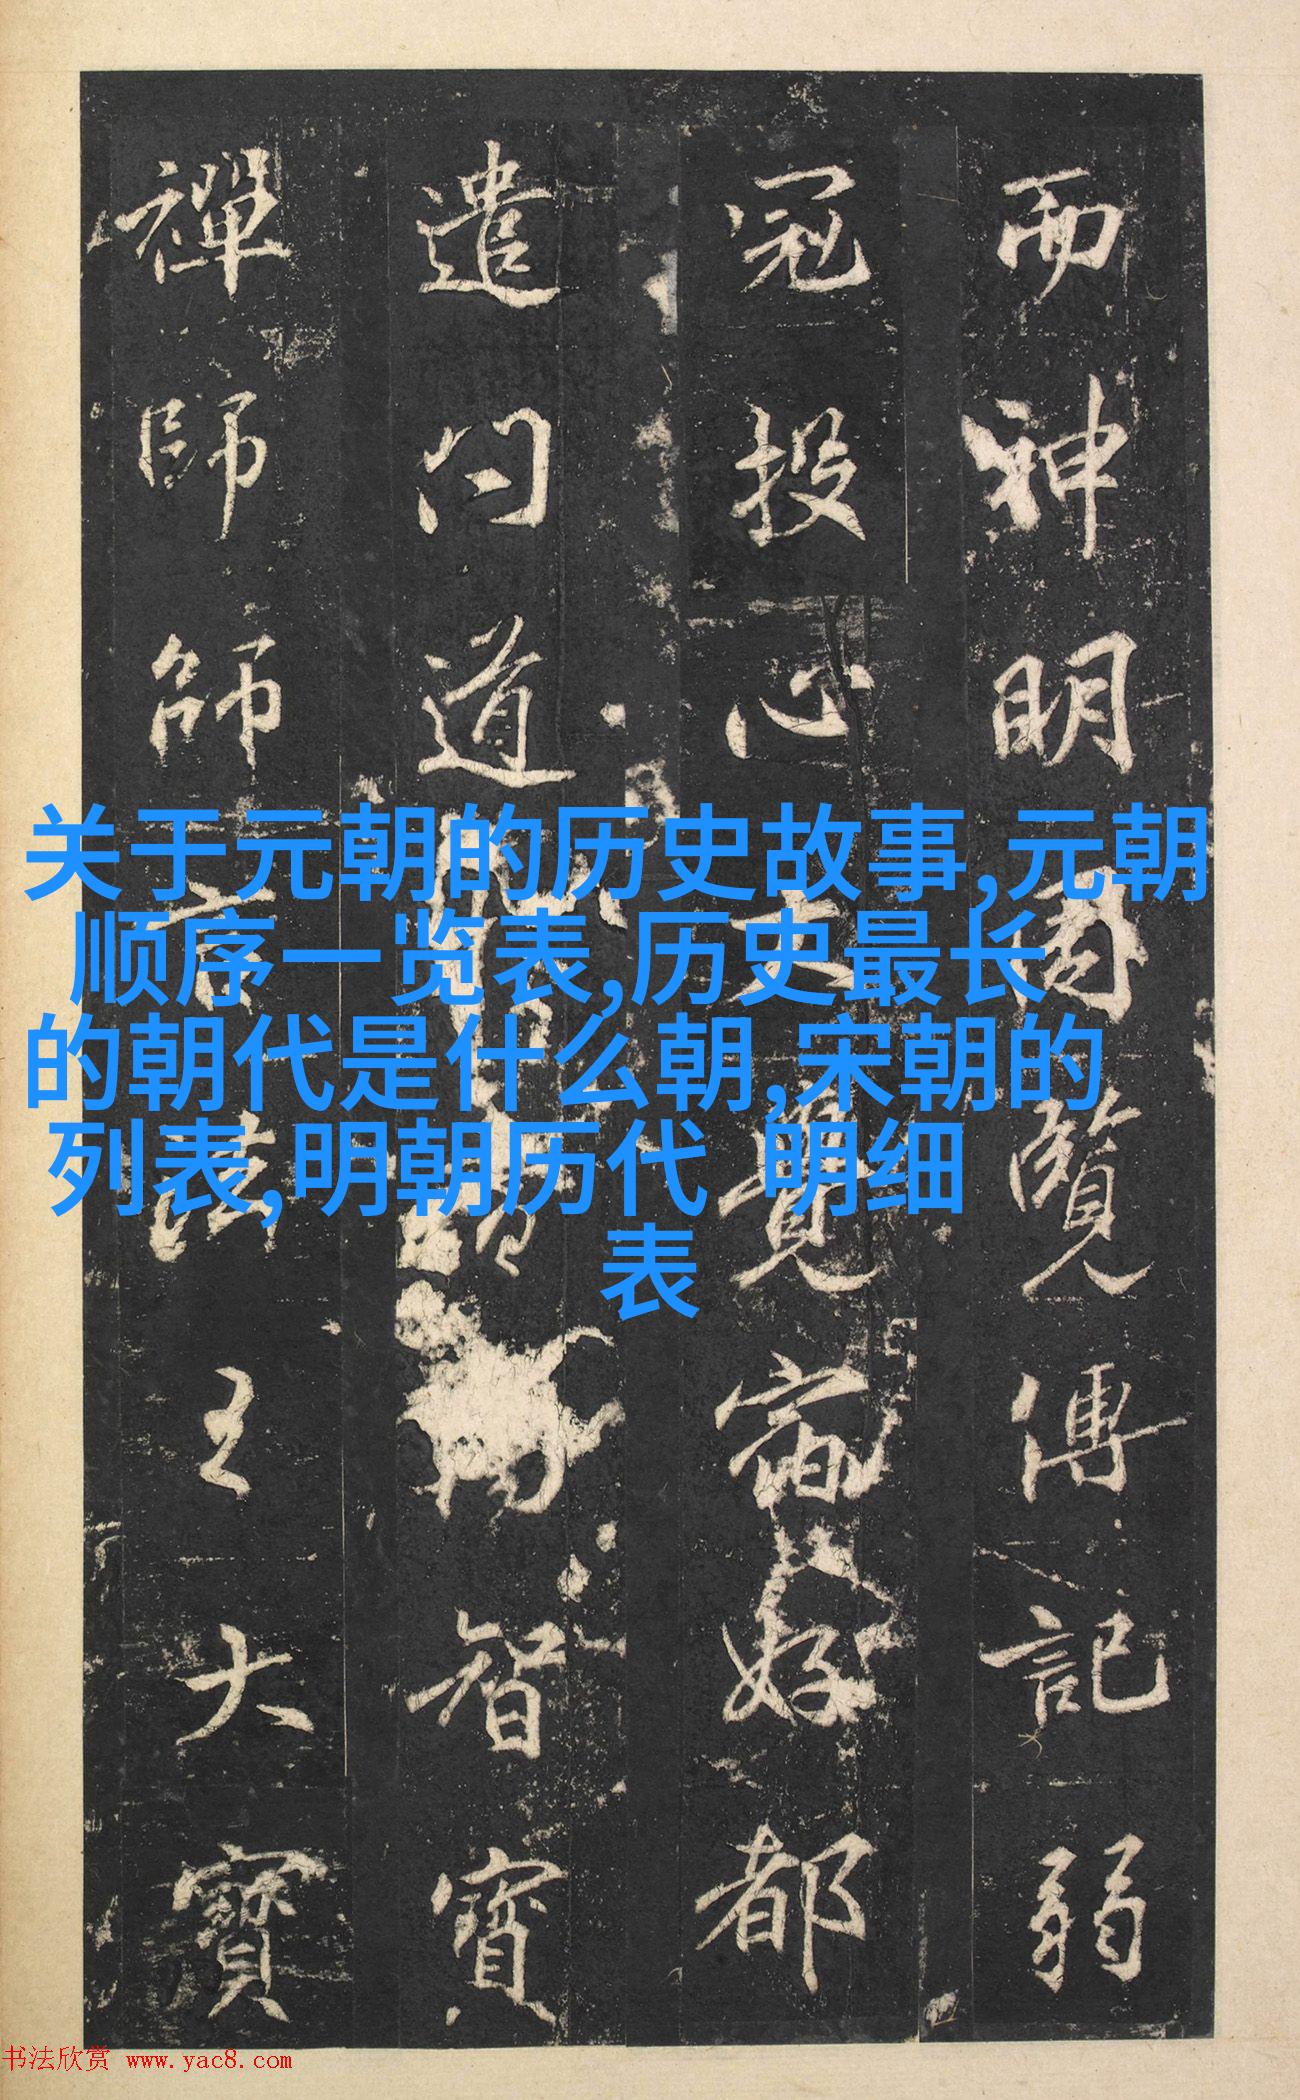 而神明
覽傳記弱
冠投心
宿好都
遣問道
智寶
禪師師
主大寶
关于元朝的历史故事,元朝
顺序一览表,历史最长
的朝代是什么朝,宋朝的
列表,明朝历代 明细
表
书法欣赏 www.yac8.com